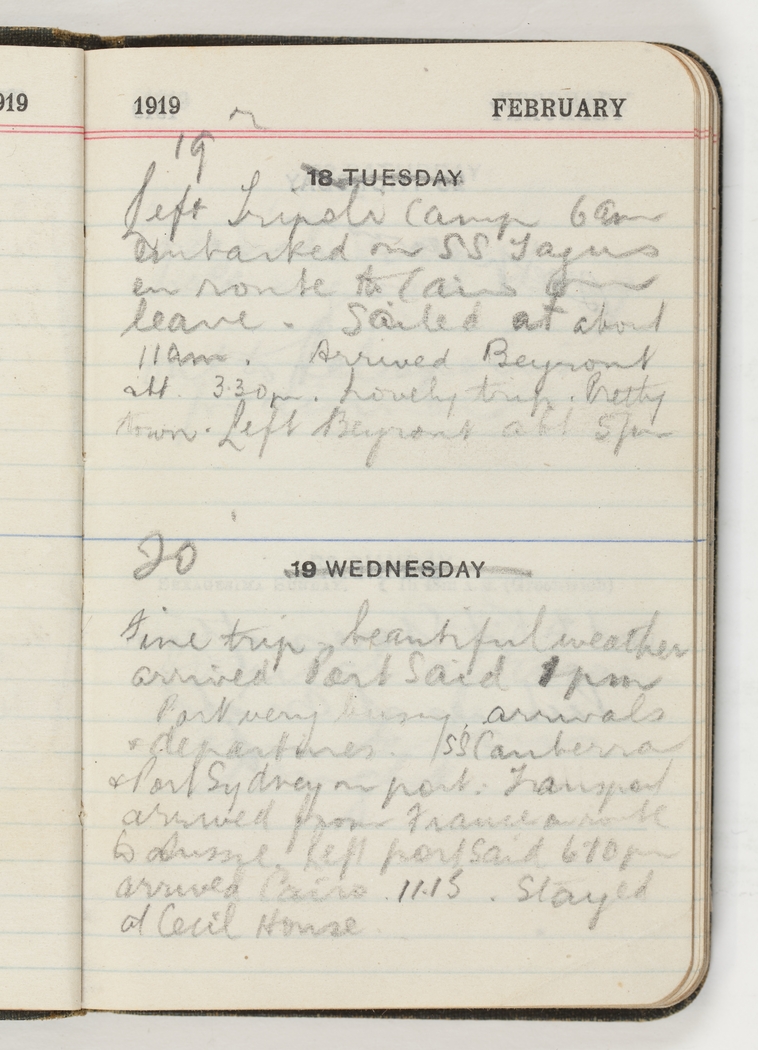 919
1919 FEBRUARY
19
18 TUESDAY
Left Tripoli Camp 6am
Embarked on SS Tagus
en route to Cairo on
leave. Sailed at about
11am. Arrived Beyront
abt 3.30pm. Lovely trip. Pretty
town. Left Beyront abt 5pm
20
19 WEDNESDAY
Fine trip, beautiful weather
arrived Port Said 1pm
Port very busy, arrivals
& departures. SS Canberra
& Port Sydney in port. Transport
arrived from France en route
to Aussie. Left port Said 610pm
arrived Cairo 11.15. Stayed
at Cecil House